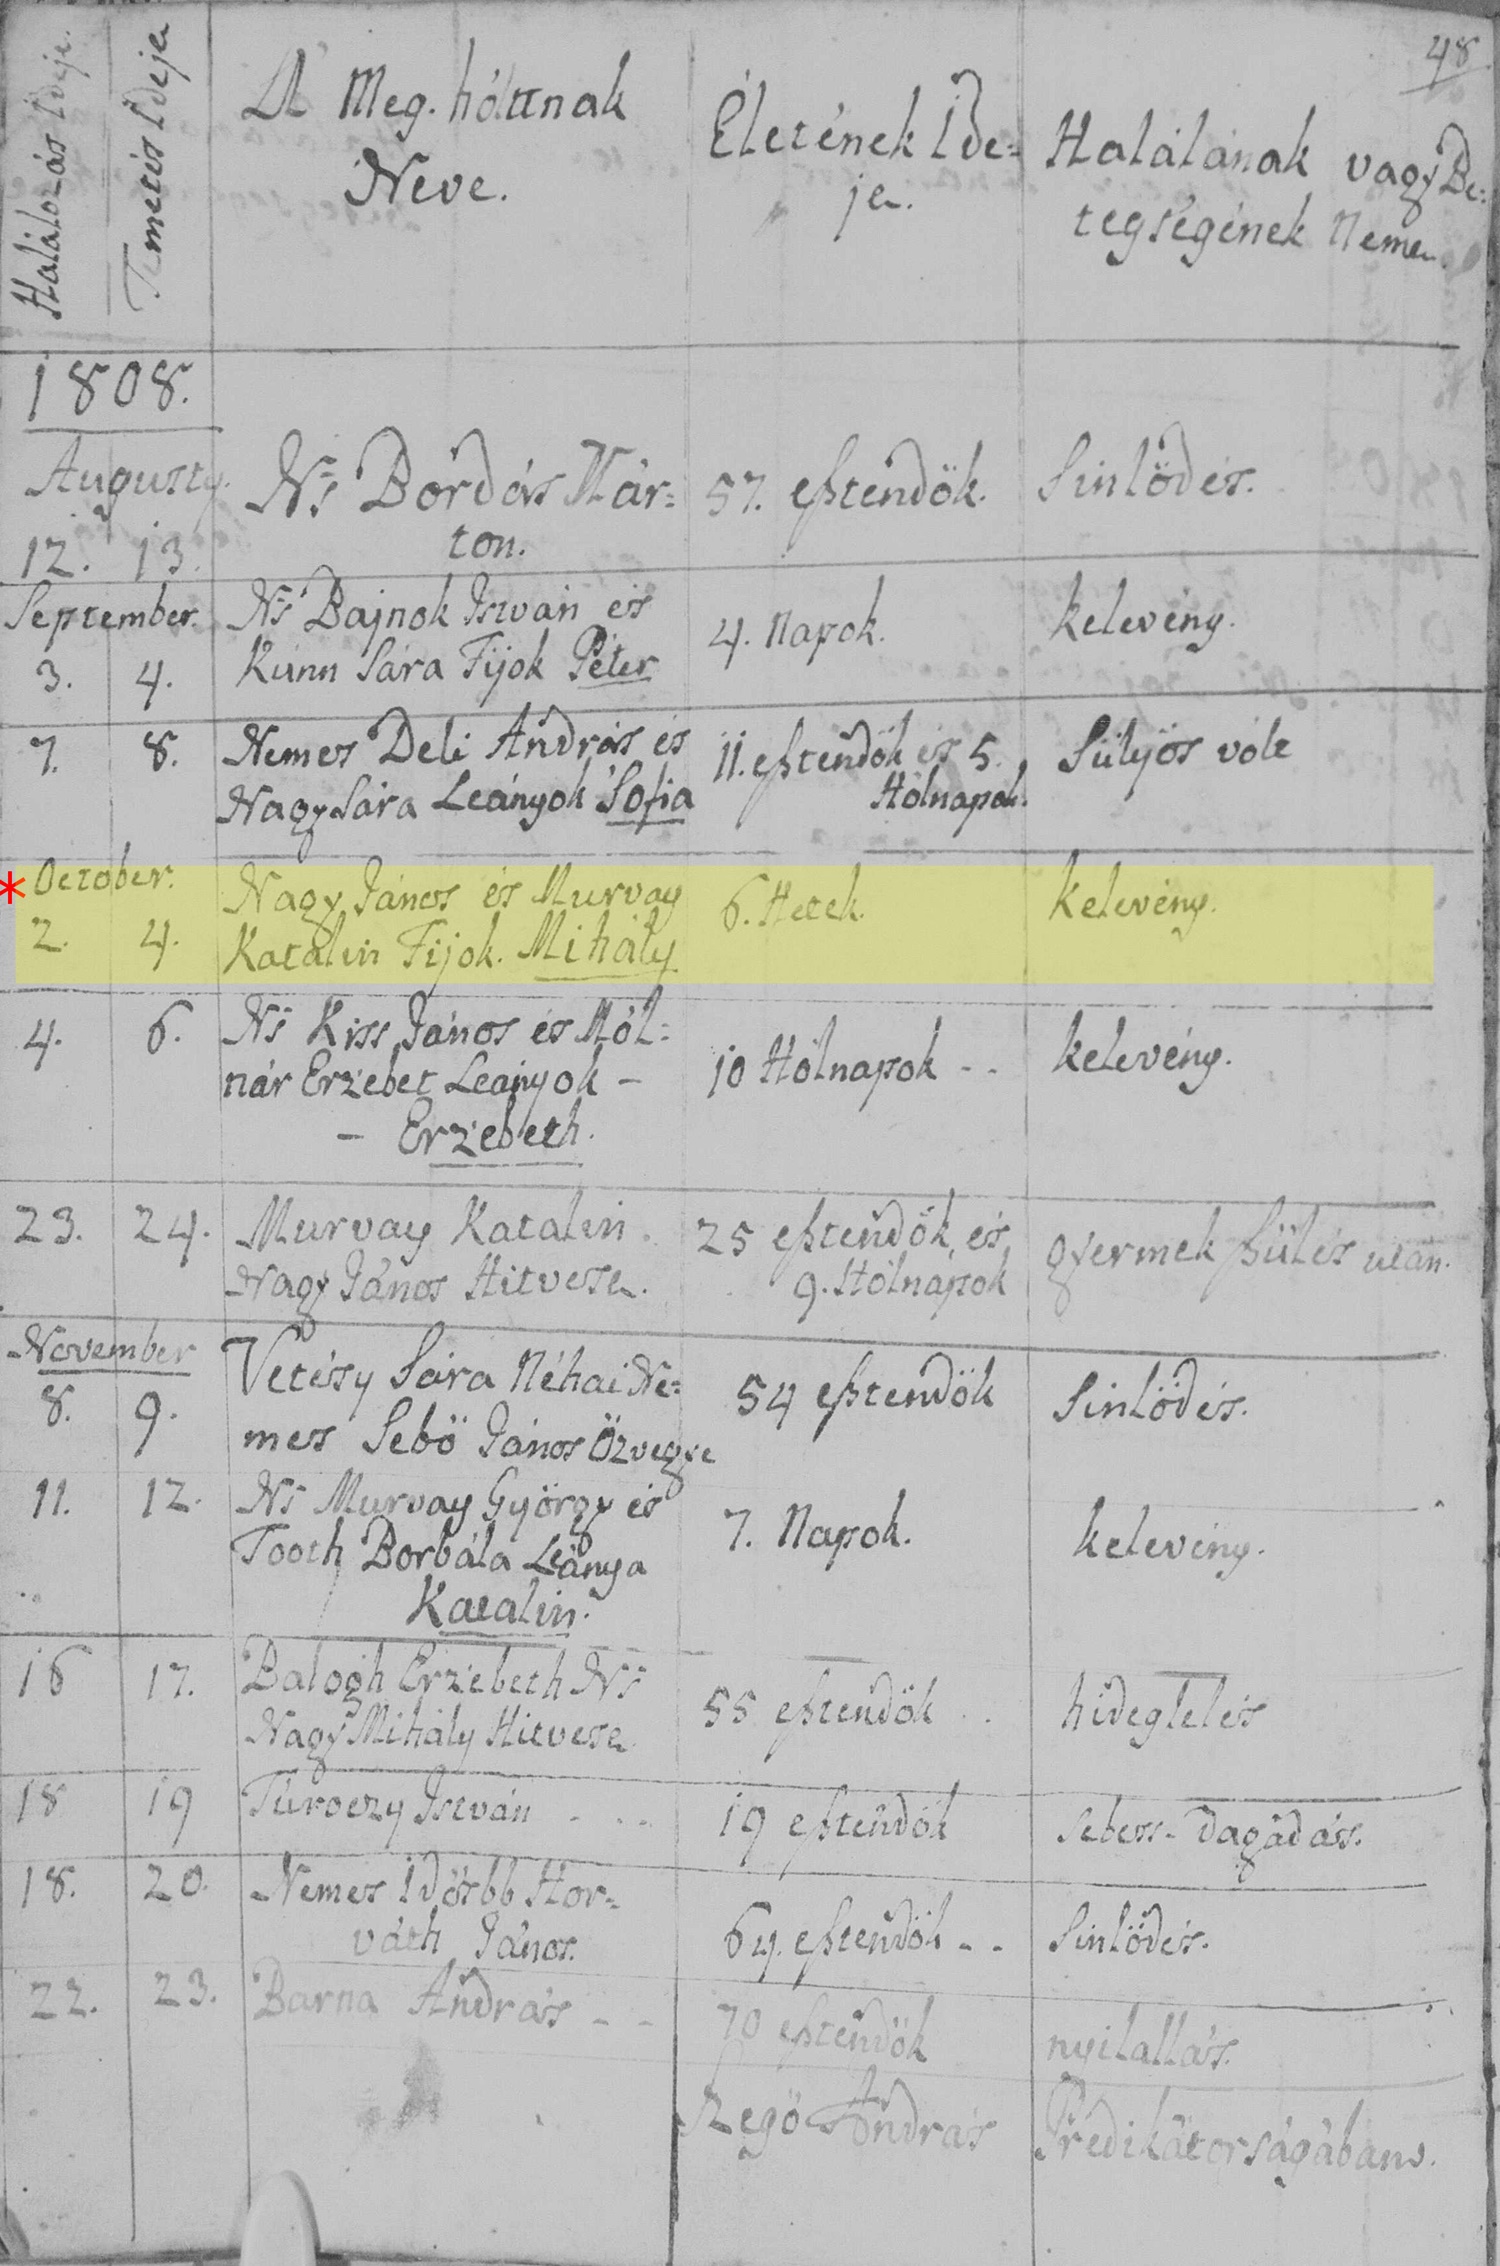 48
Halálozás Ideje.
Temetés Ideje
A Meg. hólttnak
Neve.
Életének Ide=
je.
Halálának vagy Be=
tegségének Neme.
1808.
Augusty.
12. 13.
Ns Bordás Már=
ton.
57. esztendők.
Sinlődés.
September.
3. 4.
Ns Bajnok Istvan és
Kunn Sára Fijok Péter
4. Napok.
kelevény.
7. 8.
Nemes Deli András és
Nagy Sára Leányok Sofia
11. esztendők és 5.
Hólnapok.
Sűlyös vólt
* October.
2. 4.
Nagy János és Murvay
Katalin Fijok. Mihály
6. Hetek.
kelevény.
4. 6.
Ns Kiss János és Mól=
nár Erzebet Leányok –
– Erzebeth.
10 Hólnapok - -
kelevény.
23. 24.
Murvay Katalin.
Nagy János Hitvese.
25 esztendők és
9. Hólnapok
gyermek szülés után.
November
8. 9.
Vetésy Sára Néhai Ne=
mes Sebő János Özvegye
54 esztendők
Sinlődés.
11. 12.
Ns Murvay György és
Tooth Borbála Leánya
Katalin.
7. Napok.
kelevény.
16 17.
Balogh Erzebeth Ns
Nagy Mihály Hitvese.
55 esztendők - -
hideglelés
18 19
Túroczy István - - -
19 esztendők
Sebess- dagadás.
18. 20.
Nemes Idősbb Hor=
váth János.
64. esztendők - -
Sinlődés.
22. 23.
Barna András - -
70 esztendők
nyilallás.
Szegő András
Prédikátorságában.